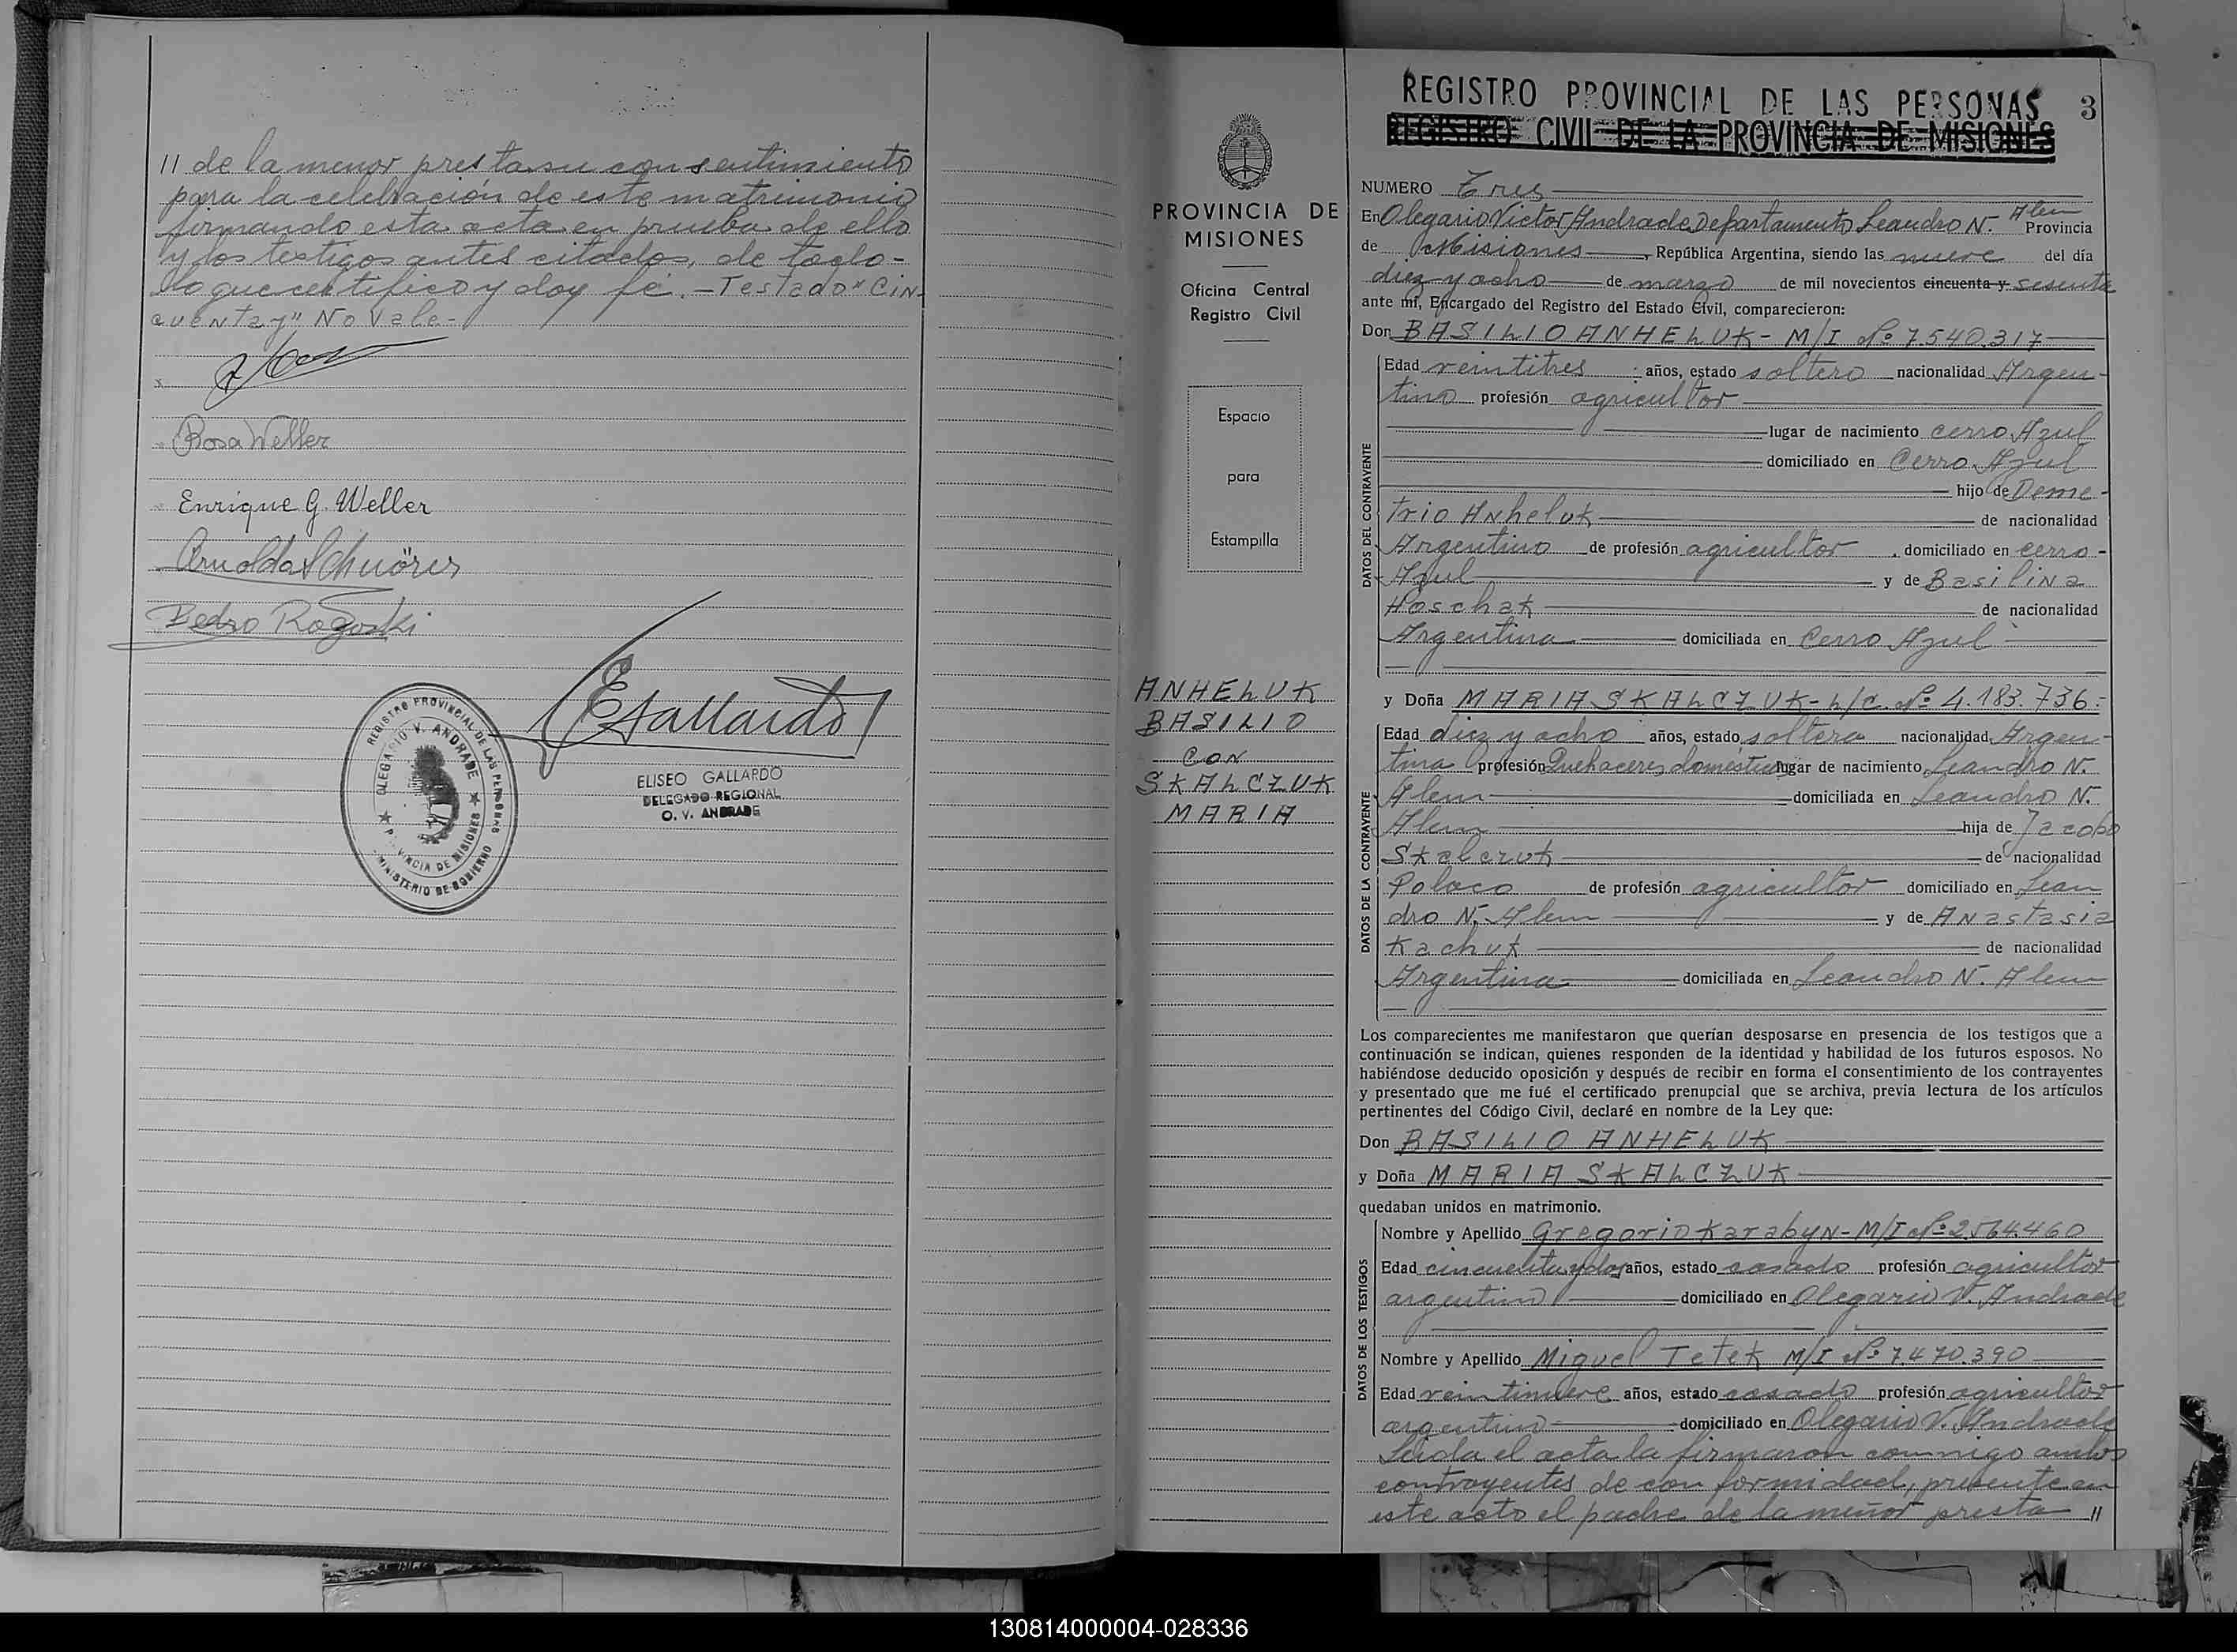 // de la menor presta su consentimiento
para la celebración de este matrimonio
firmando esta acta en prueba de ello
y los testigos antes citados, de todo-
lo que certifico y doy fé.-Testado "Cin-
cuenta y" No Vale.-
Rosa Weller
Enrique G. Weller
Pedro Rogoski
EGallardo
ELISEO GALLARDO
DELEGADO REGIONAL
O. V. ANDRADE
REGISTRO PROVINCIAL DE LAS PERSONAS
OLEGARIO V. ANDRADE
PROVINCIA DE MISIONES
MINISTERIO DE GOBIERNO
PROVINCIA DE
MISIONES
Oficina Central
Registro Civil
Espacio
para
Estampilla
ANHELUK
BASILIO
CON
SKALCZUK
MARIA
REGISTRO PROVINCIAL DE LAS PERSONAS 3
REGISTRO CIVIL DE LA PROVINCIA DE MISIONES
NUMERO Tres
En Olegario Victor Andrade, Departamento Leandro N. Alem Provincia
de Misiones, República Argentina, siendo las nueve del día
diez y ocho de marzo de mil novecientos cincuenta y sesenta
ante mí, Encargado del Registro del Estado Civil, comparecieron:
Don BASILIO ANHELUK- M/I Nº 7.540.317
DATOS DEL CONTRAYENTE
Edad veintitres años, estado soltero nacionalidad Argen-
tino profesión agricultor
lugar de nacimiento Cerro Azul
domiciliado en Cerro Azul
hijo de Deme-
trio Anheluk de nacionalidad
Argentino de profesión agricultor, domiciliado en cerro-
Azul y de Basilina
Hoschak de nacionalidad
Argentina domiciliada en Cerro Azul
y Doña MARIA SKALCZUK- L/C. Nº 4.183.736:
DATOS DE LA CONTRAYENTE
Edad diez y ocho años, estado soltera nacionalidad Argen-
tina profesión Quehaceres domésticos lugar de nacimiento Leandro N.
Alem domiciliada en Leandro N.
Alem hija de Jacobo
Skalczuk de nacionalidad
Polaco de profesión agricultor domiciliado en Lean
dro N. Alem y de Anastasia
Kachuk de nacionalidad
Argentina domiciliada en Leandro N. Alem
Los comparecientes me manifestaron que querían desposarse en presencia de los testigos que a
continuación se indican, quienes responden de la identidad y habilidad de los futuros esposos. No
habiéndose deducido oposición y después de recibir en forma el consentimiento de los contrayentes
y presentado que me fué el certificado prenupcial que se archiva, previa lectura de los artículos
pertinentes del Código Civil, declaré en nombre de la Ley que:
Don BASILIO ANHELUK
y Doña MARIA SKALCZUK
quedaban unidos en matrimonio.
DATOS DE LOS TESTIGOS
Nombre y Apellido Gregorio Karabyn- M/I Nº 2.564.460
Edad cincuenta y dos años, estado casado profesión agricultor
argentino domiciliado en Olegario V. Andrade
Nombre y Apellido Miguel Tetek M/I Nº 7.470.390
Edad veintinueve años, estado casado profesión agricultor
argentino domiciliado en Olegario V. Andrade
Leida el acta la firmaron conmigo ambos
contrayentes de conformidad, presente en
este acto el padre de la menor presta //
130814000004-028336